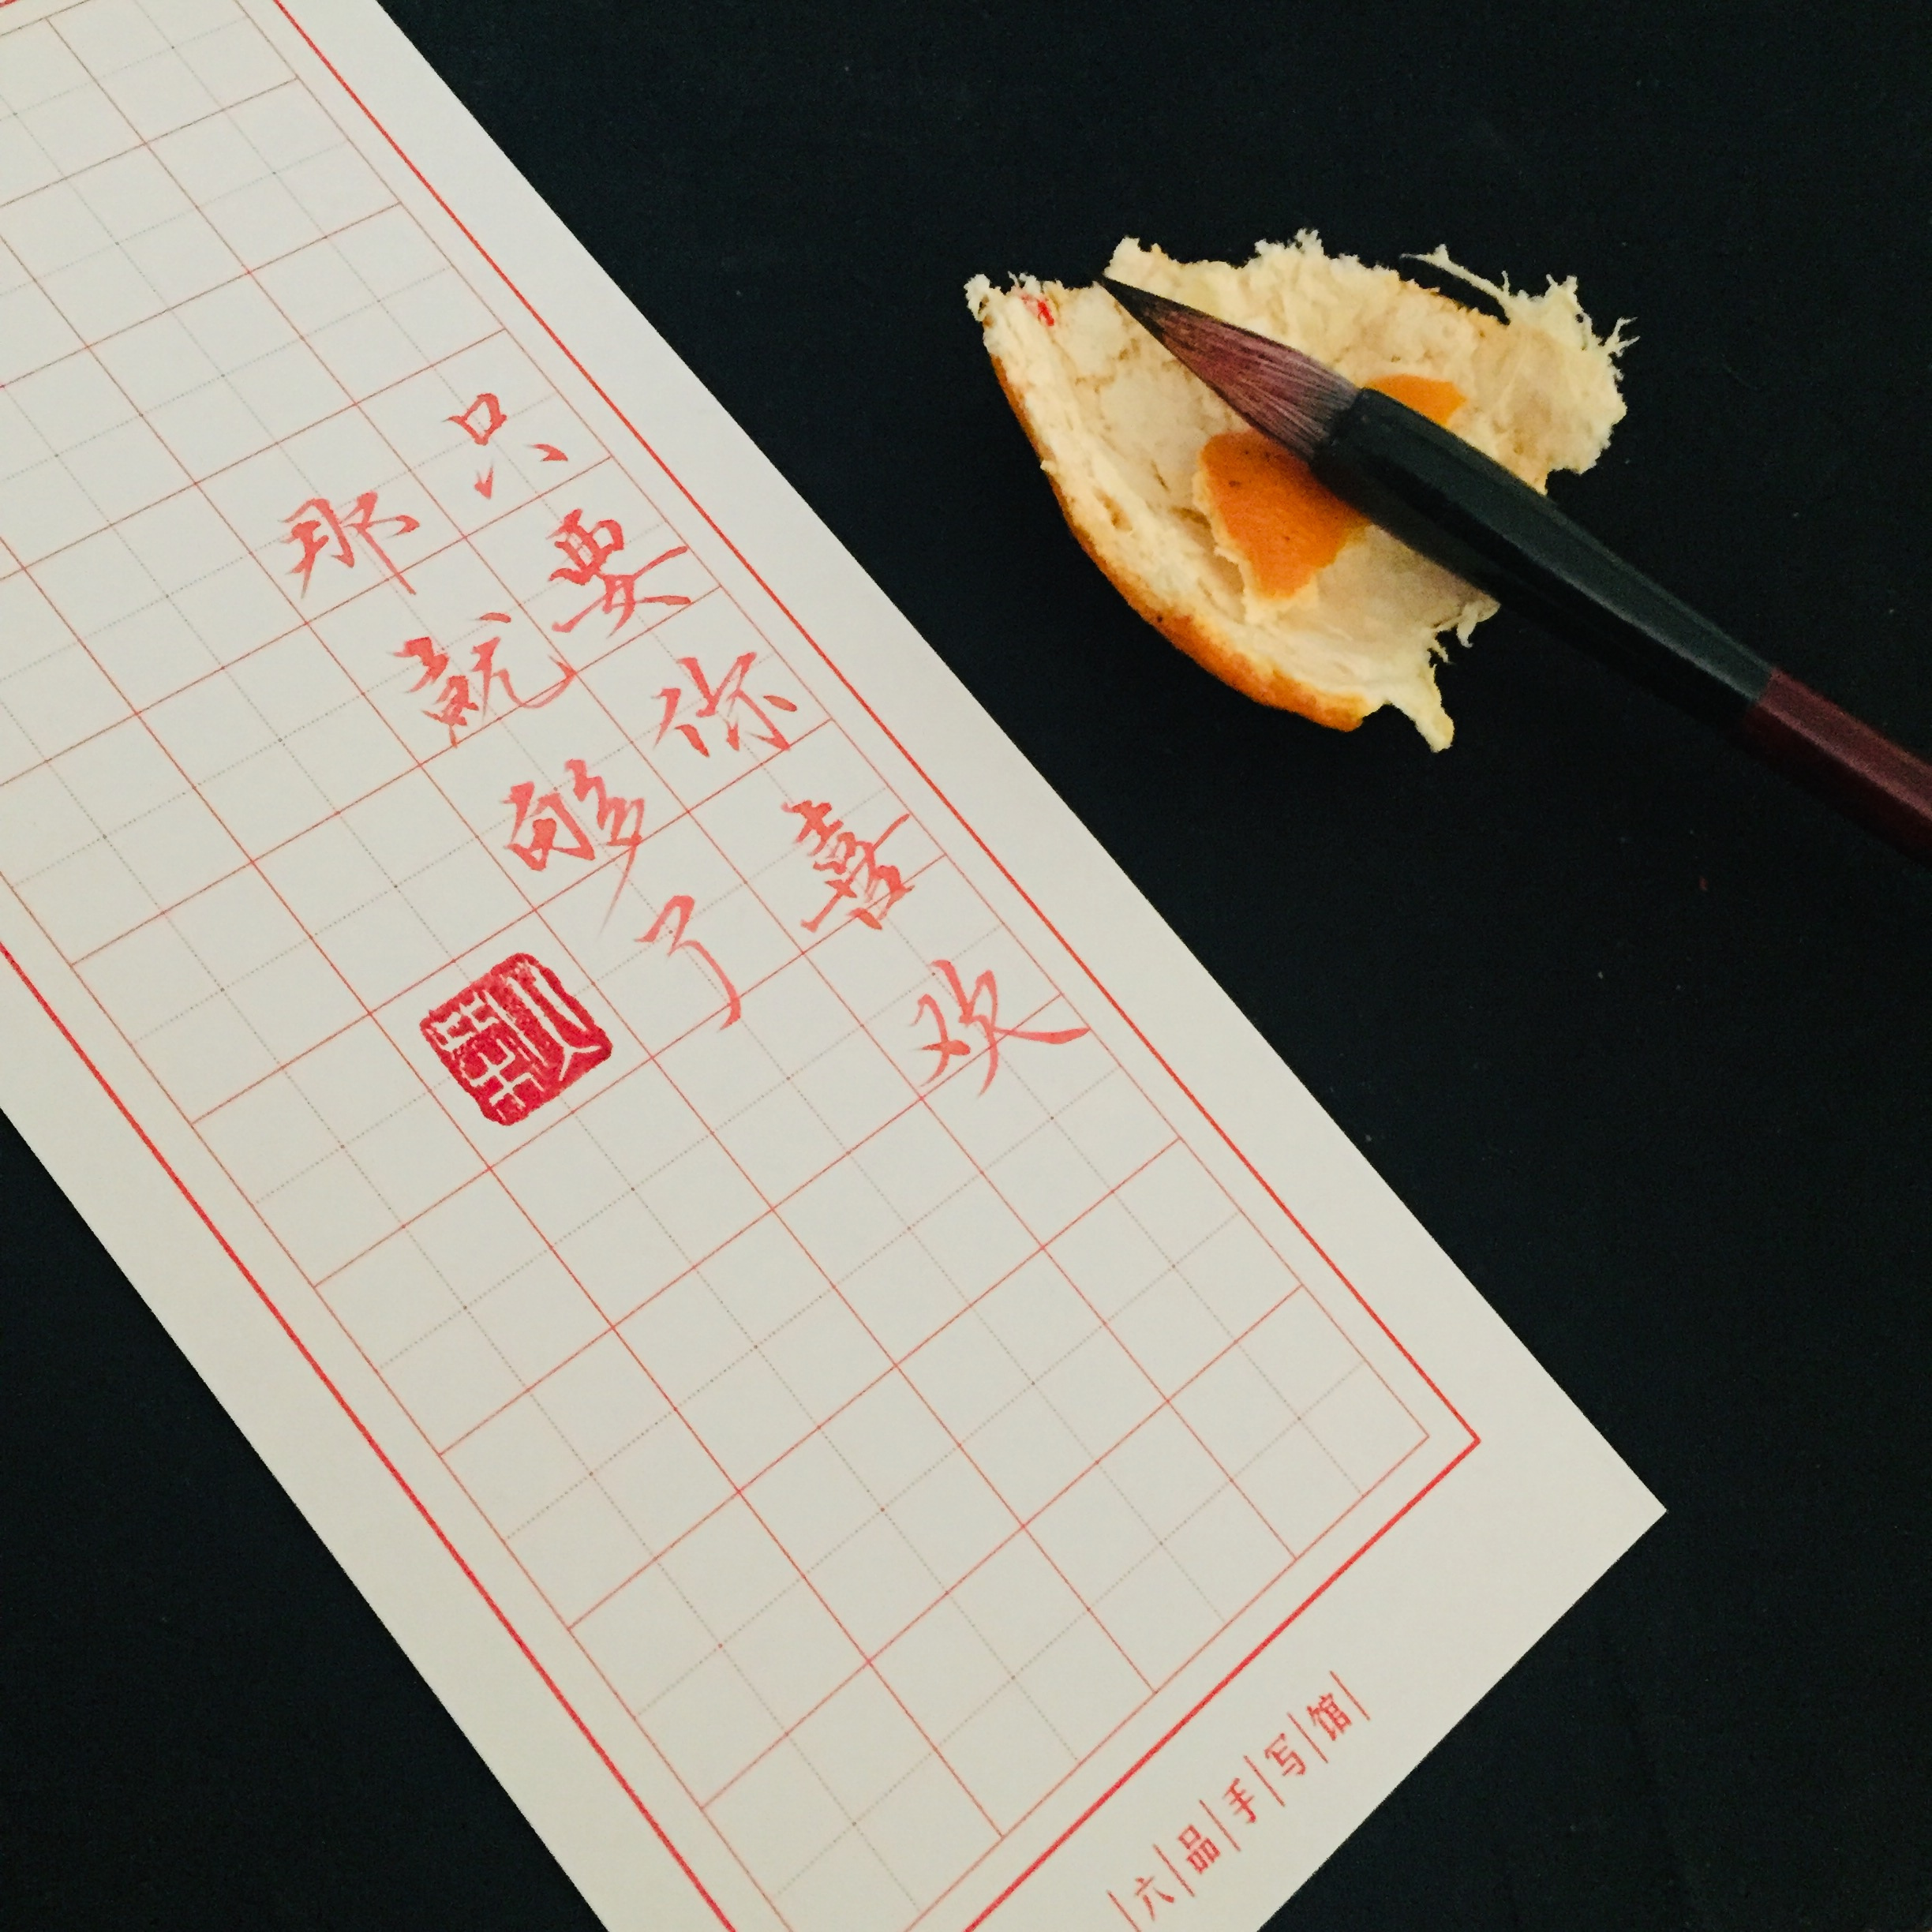 只要你喜欢
那就够了
六品手写馆